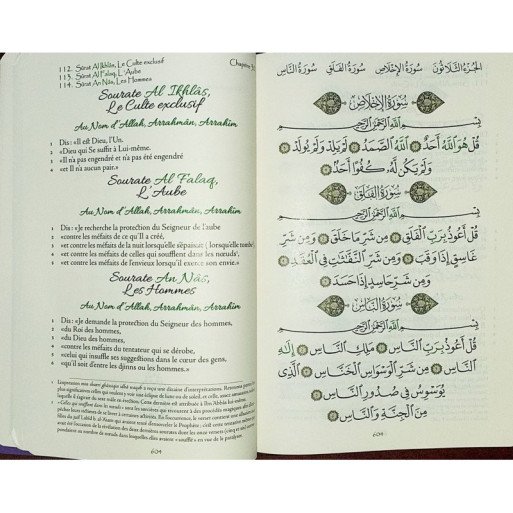 112. Sûrat Al Ikhlâs, Le Culte exclusif
113. Sûrat Al Falaq, L'Aube
114. Sûrat An Nâs, Les Hommes
Chapitre
Sourate Al Ikhlâs,
Le Culte exclusif
Au Nom d'Allah, Arrahmân, Arrahîm
1 Dis: «Il est Dieu, l'Un.
2 «Dieu qui Se suffit à Lui-même.
3 «Il n'a pas engendré et n'a pas été engendré
4 «et Il n'a aucun pair.»
Sourate Al Falaq,
L'Aube
Au Nom d'Allah, Arrahmân, Arrahîm
1 Dis : «Je recherche la protection du Seigneur de l'aube
2 «contre les méfaits de ce qu'Il a créé,
3 «et contre les méfaits de la nuit lorsqu'elle s'épaissit (lorsqu'elle tombe)
4 «et contre les méfaits de celles qui soufflent dans les nœuds¹,
5 «et contre les méfaits de l'envieux lorsqu'il exerce son envie.»
Sourate An Nâs,
Les Hommes
Au Nom d'Allah, Arrahmân, Arrahîm
1 Dis : «Je demande la protection du Seigneur des hommes,
2 «du Roi des hommes,
3 «du Dieu des hommes,
4 «contre les méfaits du tentateur qui se dérobe,
5 «celui qui insuffle ses suggestions dans le cœur des gens,
6 «qu'il soit d'entre les djinns ou les hommes.»
604
الجزء الثلاثون سورة الإخلاص سورة الفلق سورة الناس
سورة الإخلاص
بسم الله الرحمن الرحيم
قُلْ هُوَ اللَّهُ أَحَدٌ ۝ اللَّهُ الصَّمَدُ ۝ لَمْ يَلِدْ وَلَمْ يُولَدْ ۝
وَلَمْ يَكُن لَّهُ كُفُوًا أَحَدٌ ۝
سورة الفلق
بسم الله الرحمن الرحيم
قُلْ أَعُوذُ بِرَبِّ الْفَلَقِ ۝ مِن شَرِّ مَا خَلَقَ ۝ وَمِن شَرِّ
غَاسِقٍ إِذَا وَقَبَ ۝ وَمِن شَرِّ النَّفَّاثَاتِ فِي الْعُقَدِ ۝
وَمِن شَرِّ حَاسِدٍ إِذَا حَسَدَ ۝
سورة الناس
بسم الله الرحمن الرحيم
قُلْ أَعُوذُ بِرَبِّ النَّاسِ ۝ مَلِكِ النَّاسِ ۝ إِلَٰهِ
النَّاسِ ۝ مِن شَرِّ الْوَسْوَاسِ الْخَنَّاسِ ۝ الَّذِي
يُوَسْوِسُ فِي صُدُورِ النَّاسِ ۝
مِنَ الْجِنَّةِ وَالنَّاسِ ۝
٦٠٤